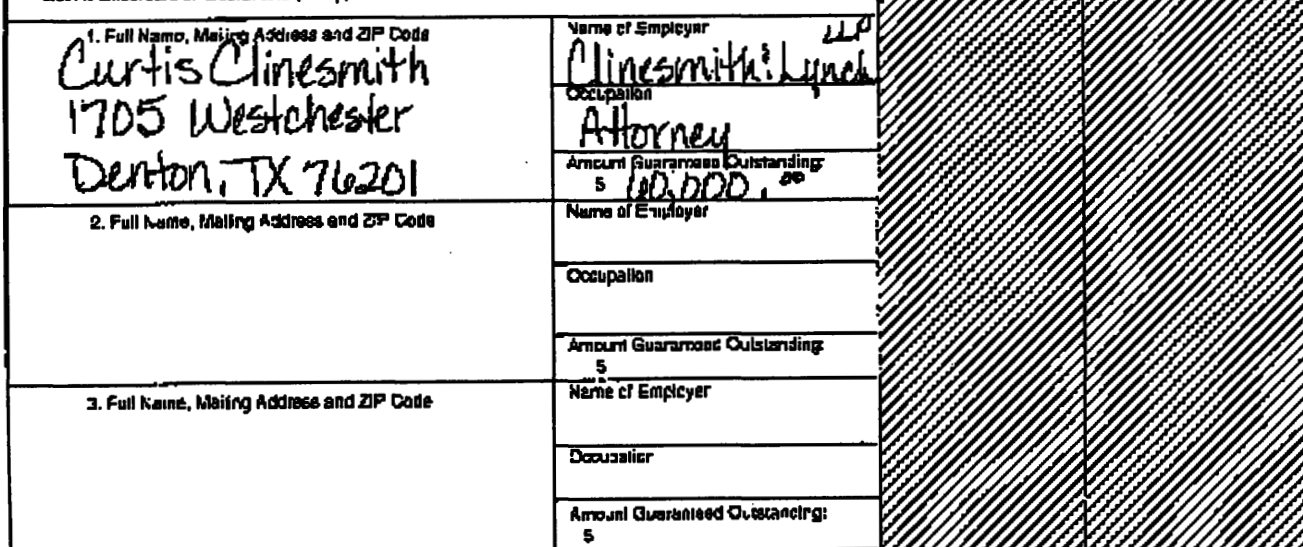 1. Full Name, Mailing Address and ZIP Code
Curtis Clinesmith
1705 Westchester
Denton, TX 76201
Name of Employer
LLP
Clinesmith & Lynch
Occupation
Attorney
Amount Guaranteed Outstanding:
$ 60,000.00
2. Full Name, Mailing Address and ZIP Code
Name of Employer
Occupation
Amount Guaranteed Outstanding:
$
3. Full Name, Mailing Address and ZIP Code
Name of Employer
Occupation
Amount Guaranteed Outstanding:
$